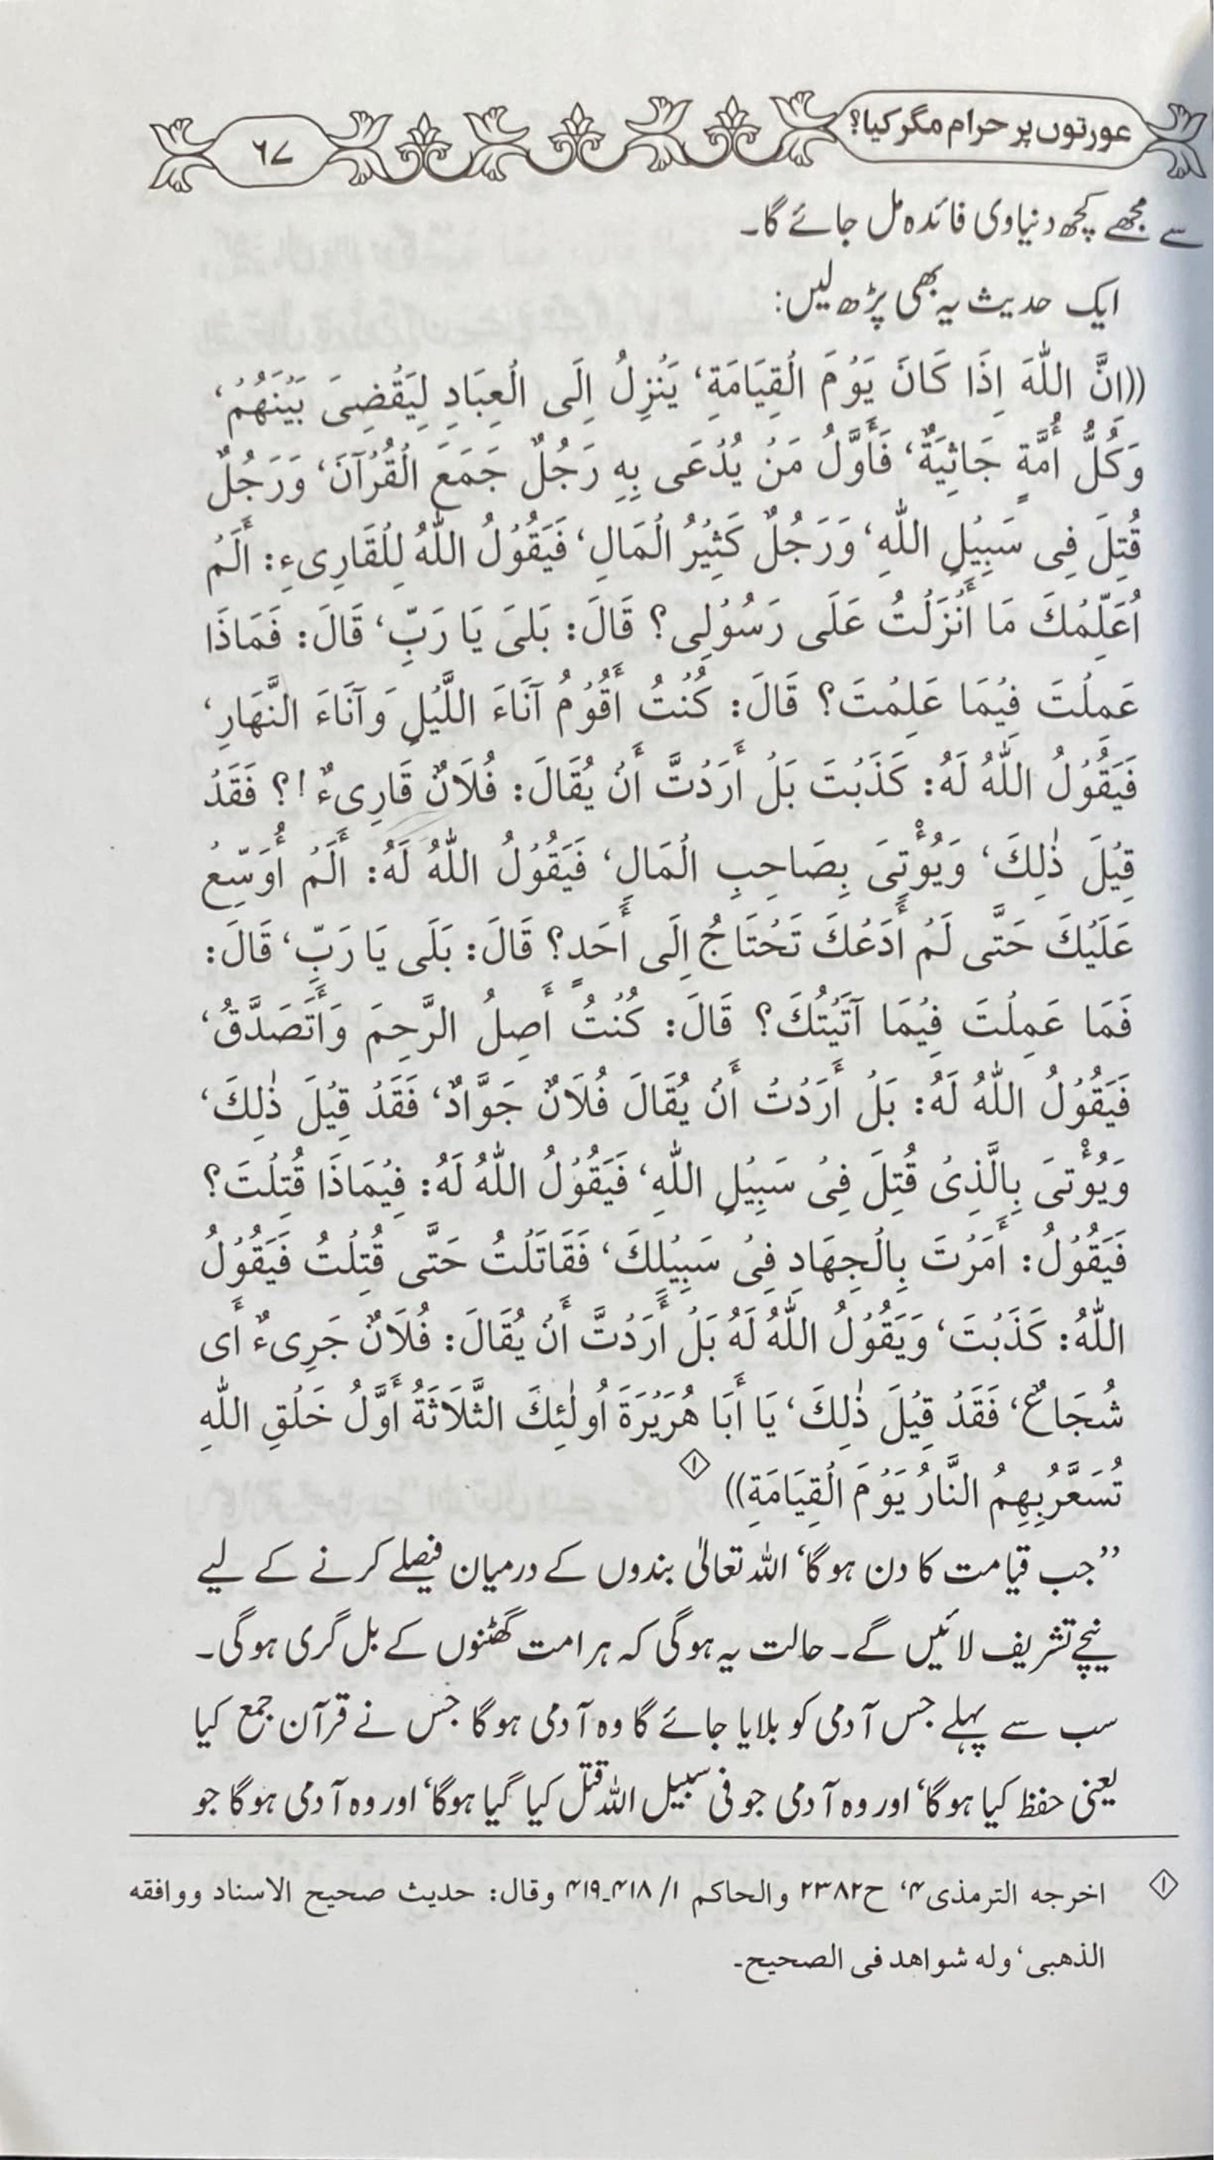 عورتوں پر حرام مگر کیا؟
٦٧
سے مجھے کچھ دنیاوی فائدہ مل جائے گا۔
ایک حدیث یہ بھی پڑھ لیں:
((اِنَّ اللّٰهَ اِذَا كَانَ يَوْمَ الْقِيَامَةِ، يَنْزِلُ اِلَى الْعِبَادِ لِيَقْضِىَ بَيْنَهُمْ،
وَكُلُّ أُمَّةٍ جَاثِيَةٌ، فَأَوَّلُ مَنْ يُدْعَى بِهِ رَجُلٌ جَمَعَ الْقُرْآنَ، وَرَجُلٌ
قُتِلَ فِى سَبِيْلِ اللّٰهِ، وَرَجُلٌ كَثِيْرُ الْمَالِ، فَيَقُوْلُ اللّٰهُ لِلْقَارِىءِ: أَلَمْ
اُعَلِّمْكَ مَا أَنْزَلْتُ عَلَى رَسُوْلِى؟ قَالَ: بَلىَ يَا رَبِّ، قَالَ: فَمَاذَا
عَمِلْتَ فِيْمَا عَلِمْتَ؟ قَالَ: كُنْتُ أَقُوْمُ آنَاءَ اللَّيْلِ وَآنَاءَ النَّهَارِ،
فَيَقُوْلُ اللّٰهُ لَهُ: كَذَبْتَ بَلْ أَرَدْتَّ أَنْ يُقَالَ: فُلَانٌ قَارِىءٌ !؟ فَقَدْ
قِيْلَ ذٰلِكَ، وَيُؤْتىَ بِصَاحِبِ الْمَالِ، فَيَقُوْلُ اللّٰهُ لَهُ: أَلَمْ أُوَسِّعْ
عَلَيْكَ حَتَّى لَمْ أَدَعْكَ تَحْتَاجُ اِلَى أَحَدٍ؟ قَالَ: بَلَى يَا رَبِّ، قَالَ:
فَمَا عَمِلْتَ فِيْمَا آتَيْتُكَ؟ قَالَ: كُنْتُ أَصِلُ الرَّحِمَ وَأَتَصَدَّقُ،
فَيَقُوْلُ اللّٰهُ لَهُ: بَلْ أَرَدْتْ أَنْ يُقَالَ فُلَانٌ جَوَّادٌ، فَقَدْ قِيْلَ ذٰلِكَ،
وَيُؤْتىَ بِالَّذِىْ قُتِلَ فِىْ سَبِيْلِ اللّٰهِ، فَيَقُوْلُ اللّٰهُ لَهُ: فِيْمَاذَا قُتِلْتَ؟
فَيَقُوْلُ: أَمَرْتَ بِالْجِهَادِ فِىْ سَبِيْلِكَ، فَقَاتَلْتُ حَتَّى قُتِلْتُ فَيَقُوْلُ
اللّٰهُ: كَذَبْتَ، وَيَقُوْلُ اللّٰهُ لَهُ بَلْ أَرَدْتَّ أَنْ يُقَالَ: فُلَانٌ جَرِىءٌ أَى
شُجَاعٌ، فَقَدْ قِيْلَ ذٰلِكَ، يَا أَبَا هُرَيْرَةَ اُولٰئِكَ الثَّلَاثَةُ أَوَّلُ خَلْقِ اللّٰهِ
تُسَعَّرُبِهِمُ النَّارُ يَوْمَ الْقِيَامَةِ)) ①
”جب قیامت کا دن ہوگا، اللہ تعالیٰ بندوں کے درمیان فیصلے کرنے کے لیے
نیچے تشریف لائیں گے۔ حالت یہ ہوگی کہ ہر امت گھٹنوں کے بل گری ہوگی۔
سب سے پہلے جس آدمی کو بلایا جائے گا وہ آدمی ہوگا جس نے قرآن جمع کیا
یعنی حفظ کیا ہوگا، اور وہ آدمی جو فی سبیل اللہ قتل کیا گیا ہوگا، اور وہ آدمی ہوگا جو
① اخرجه الترمذی۴، ح۲۳۸۲ والحاکم ۱/ ۴۱۸۔۴۱۹ وقال: حدیث صحیح الاسناد ووافقه
الذهبی، وله شواهد فی الصحیح۔